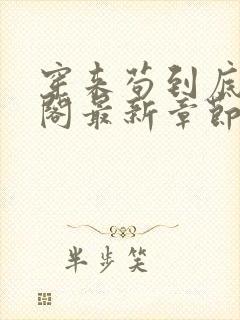 穿来苟到底
阁最新章节
半步笑